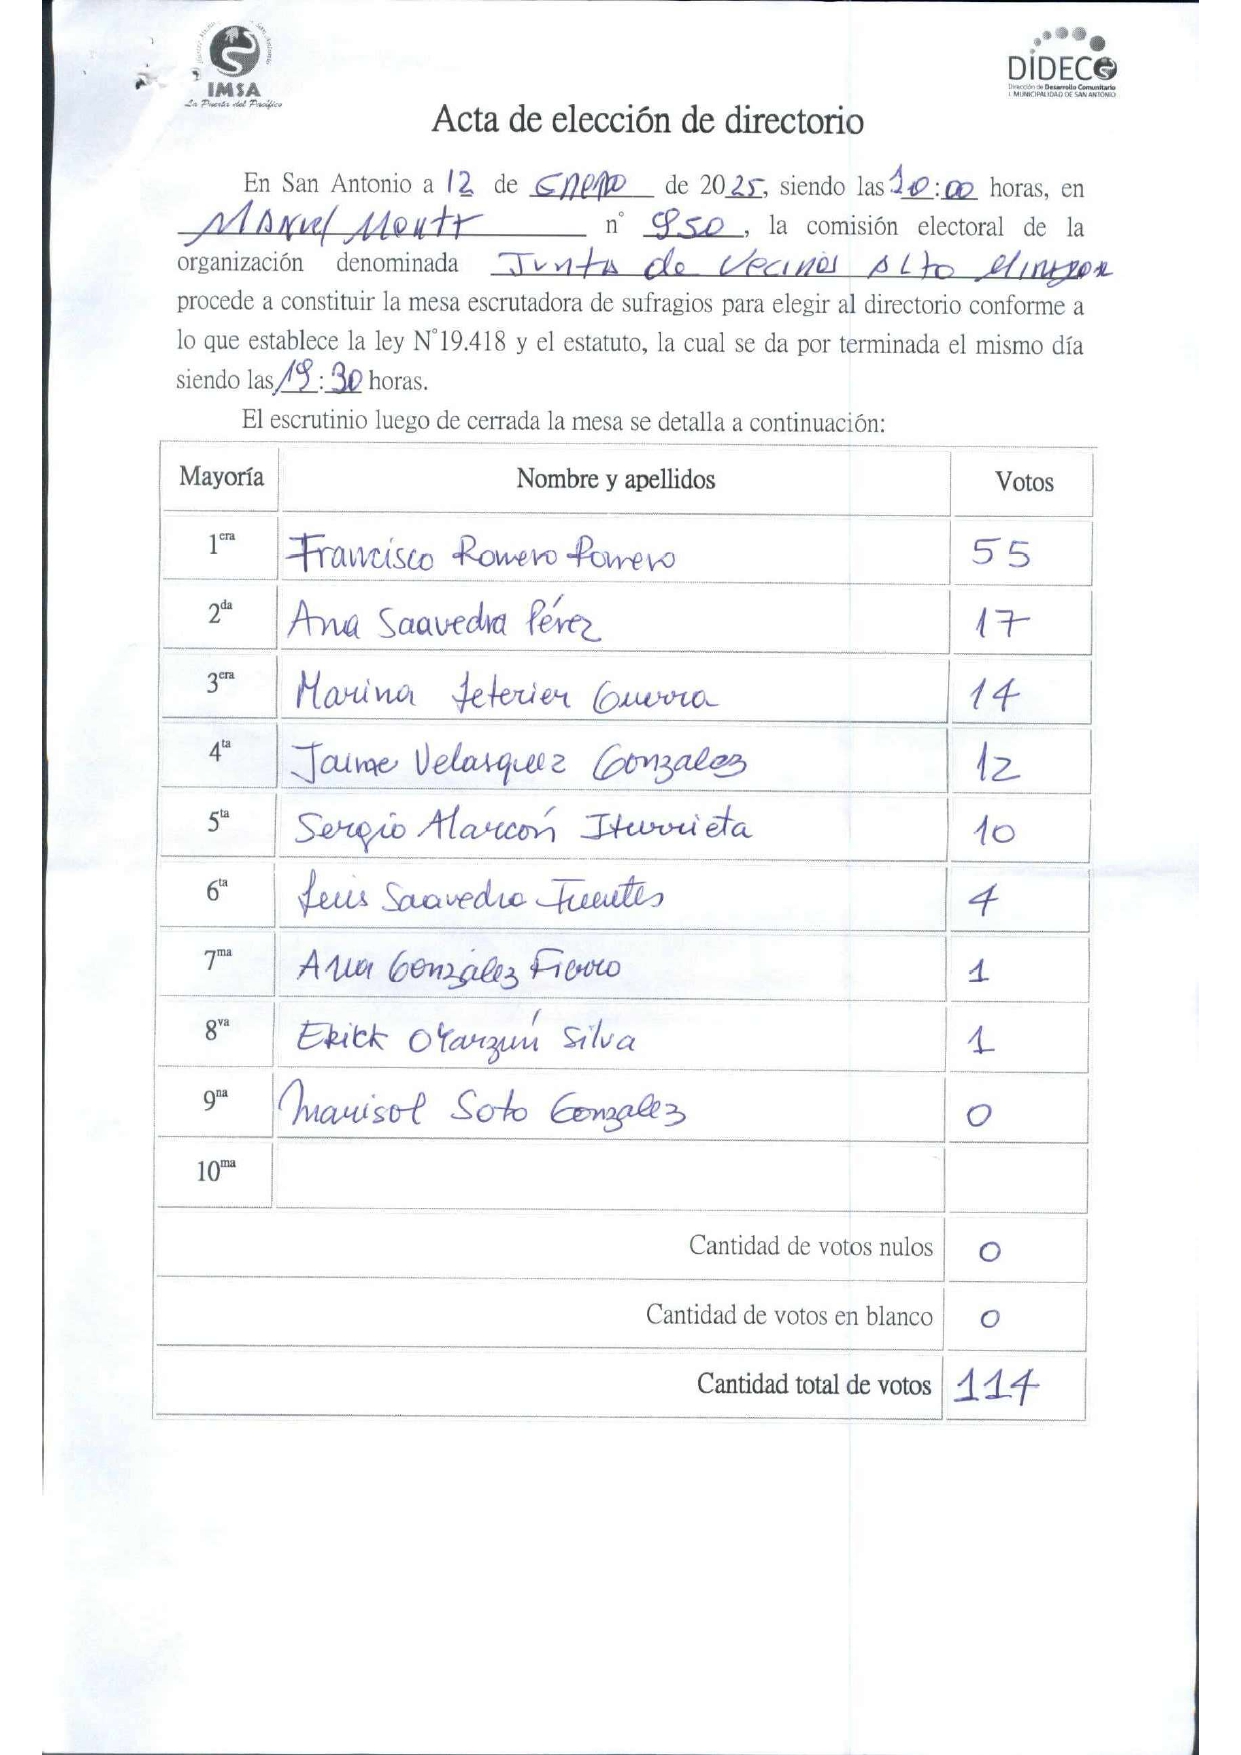 IMSA
La Puerta del Pacífico
DIDECO
Dirección de Desarrollo Comunitario
I. MUNICIPALIDAD DE SAN ANTONIO
Acta de elección de directorio
En San Antonio a 12 de Enero de 2025, siendo las 10:00 horas, en
Manuel Montt n° 950, la comisión electoral de la
organización denominada Junta de Vecinos Alto
procede a constituir la mesa escrutadora de sufragios para elegir al directorio conforme a
lo que establece la ley N°19.418 y el estatuto, la cual se da por terminada el mismo día
siendo las 19:30 horas.
El escrutinio luego de cerrada la mesa se detalla a continuación:
Mayoría Nombre y apellidos Votos
1era Francisco Romero Romero 55
2da Ana Saavedra Pérez 17
3era Marina Leterier Guerra 14
4ta Jaime Velasquez Gonzalez 12
5ta Sergio Alarcón Iturrieta 10
6ta Luis Saavedra Fuentes 4
7ma Ana González Fierro 1
8va Erick Oyarzún Silva 1
9na Marisol Soto Gonzalez 0
10ma
Cantidad de votos nulos 0
Cantidad de votos en blanco 0
Cantidad total de votos 114